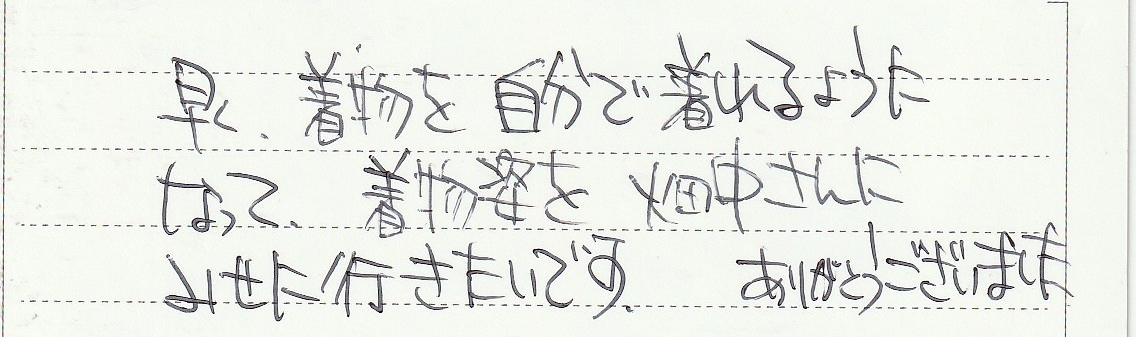 早く、着物を自分で着れるように
なって、着物姿を畑中さんに
みせに行きたいです。 ありがとうございました